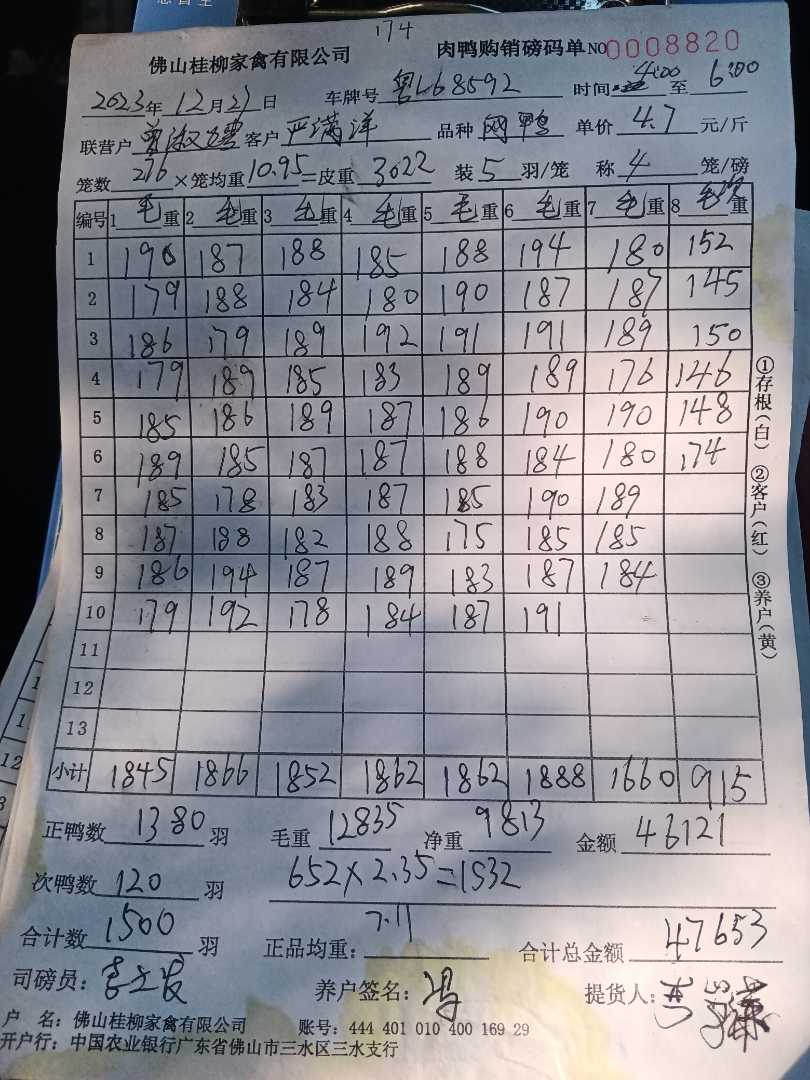 174
佛山桂柳家禽有限公司 肉鸭购销磅码单 NO 0008820
2023年12月21日 车牌号 粤L68592 时间 4:00 至 6:00
联营户 客户 严满洋 品种 网鸭 单价 4.7 元/斤
笼数 276 ×笼均重 10.95 =皮重 3022 装 5 羽/笼 称 4 笼/磅
编号 1 毛重 2 毛重 3 毛重 4 毛重 5 毛重 6 毛重 7 毛重 8 毛重
1 190 187 188 185 188 194 180 152
2 179 188 184 180 190 187 187 145
3 186 179 189 192 191 191 189 150
4 179 189 185 183 189 189 176 146
5 185 186 189 187 186 190 190 148
6 189 185 187 187 188 184 180 174
7 185 178 183 187 185 190 189
8 187 188 182 188 175 185 185
9 186 194 187 189 183 187 184
10 179 192 178 184 187 191
11
12
13
小计 1845 1866 1852 1862 1862 1888 1660 915
①存根(白) ②客户(红) ③养户(黄)
正鸭数 1380 羽 毛重 12835 净重 9813 金额 46121
次鸭数 120 羽 652×2.35=1532
合计数 1500 羽 正品均重: 7.11 合计总金额 47653
司磅员: 养户签名: 冯 提货人:
户 名: 佛山桂柳家禽有限公司 账号: 444 401 010 400 169 29
开户行: 中国农业银行广东省佛山市三水区三水支行